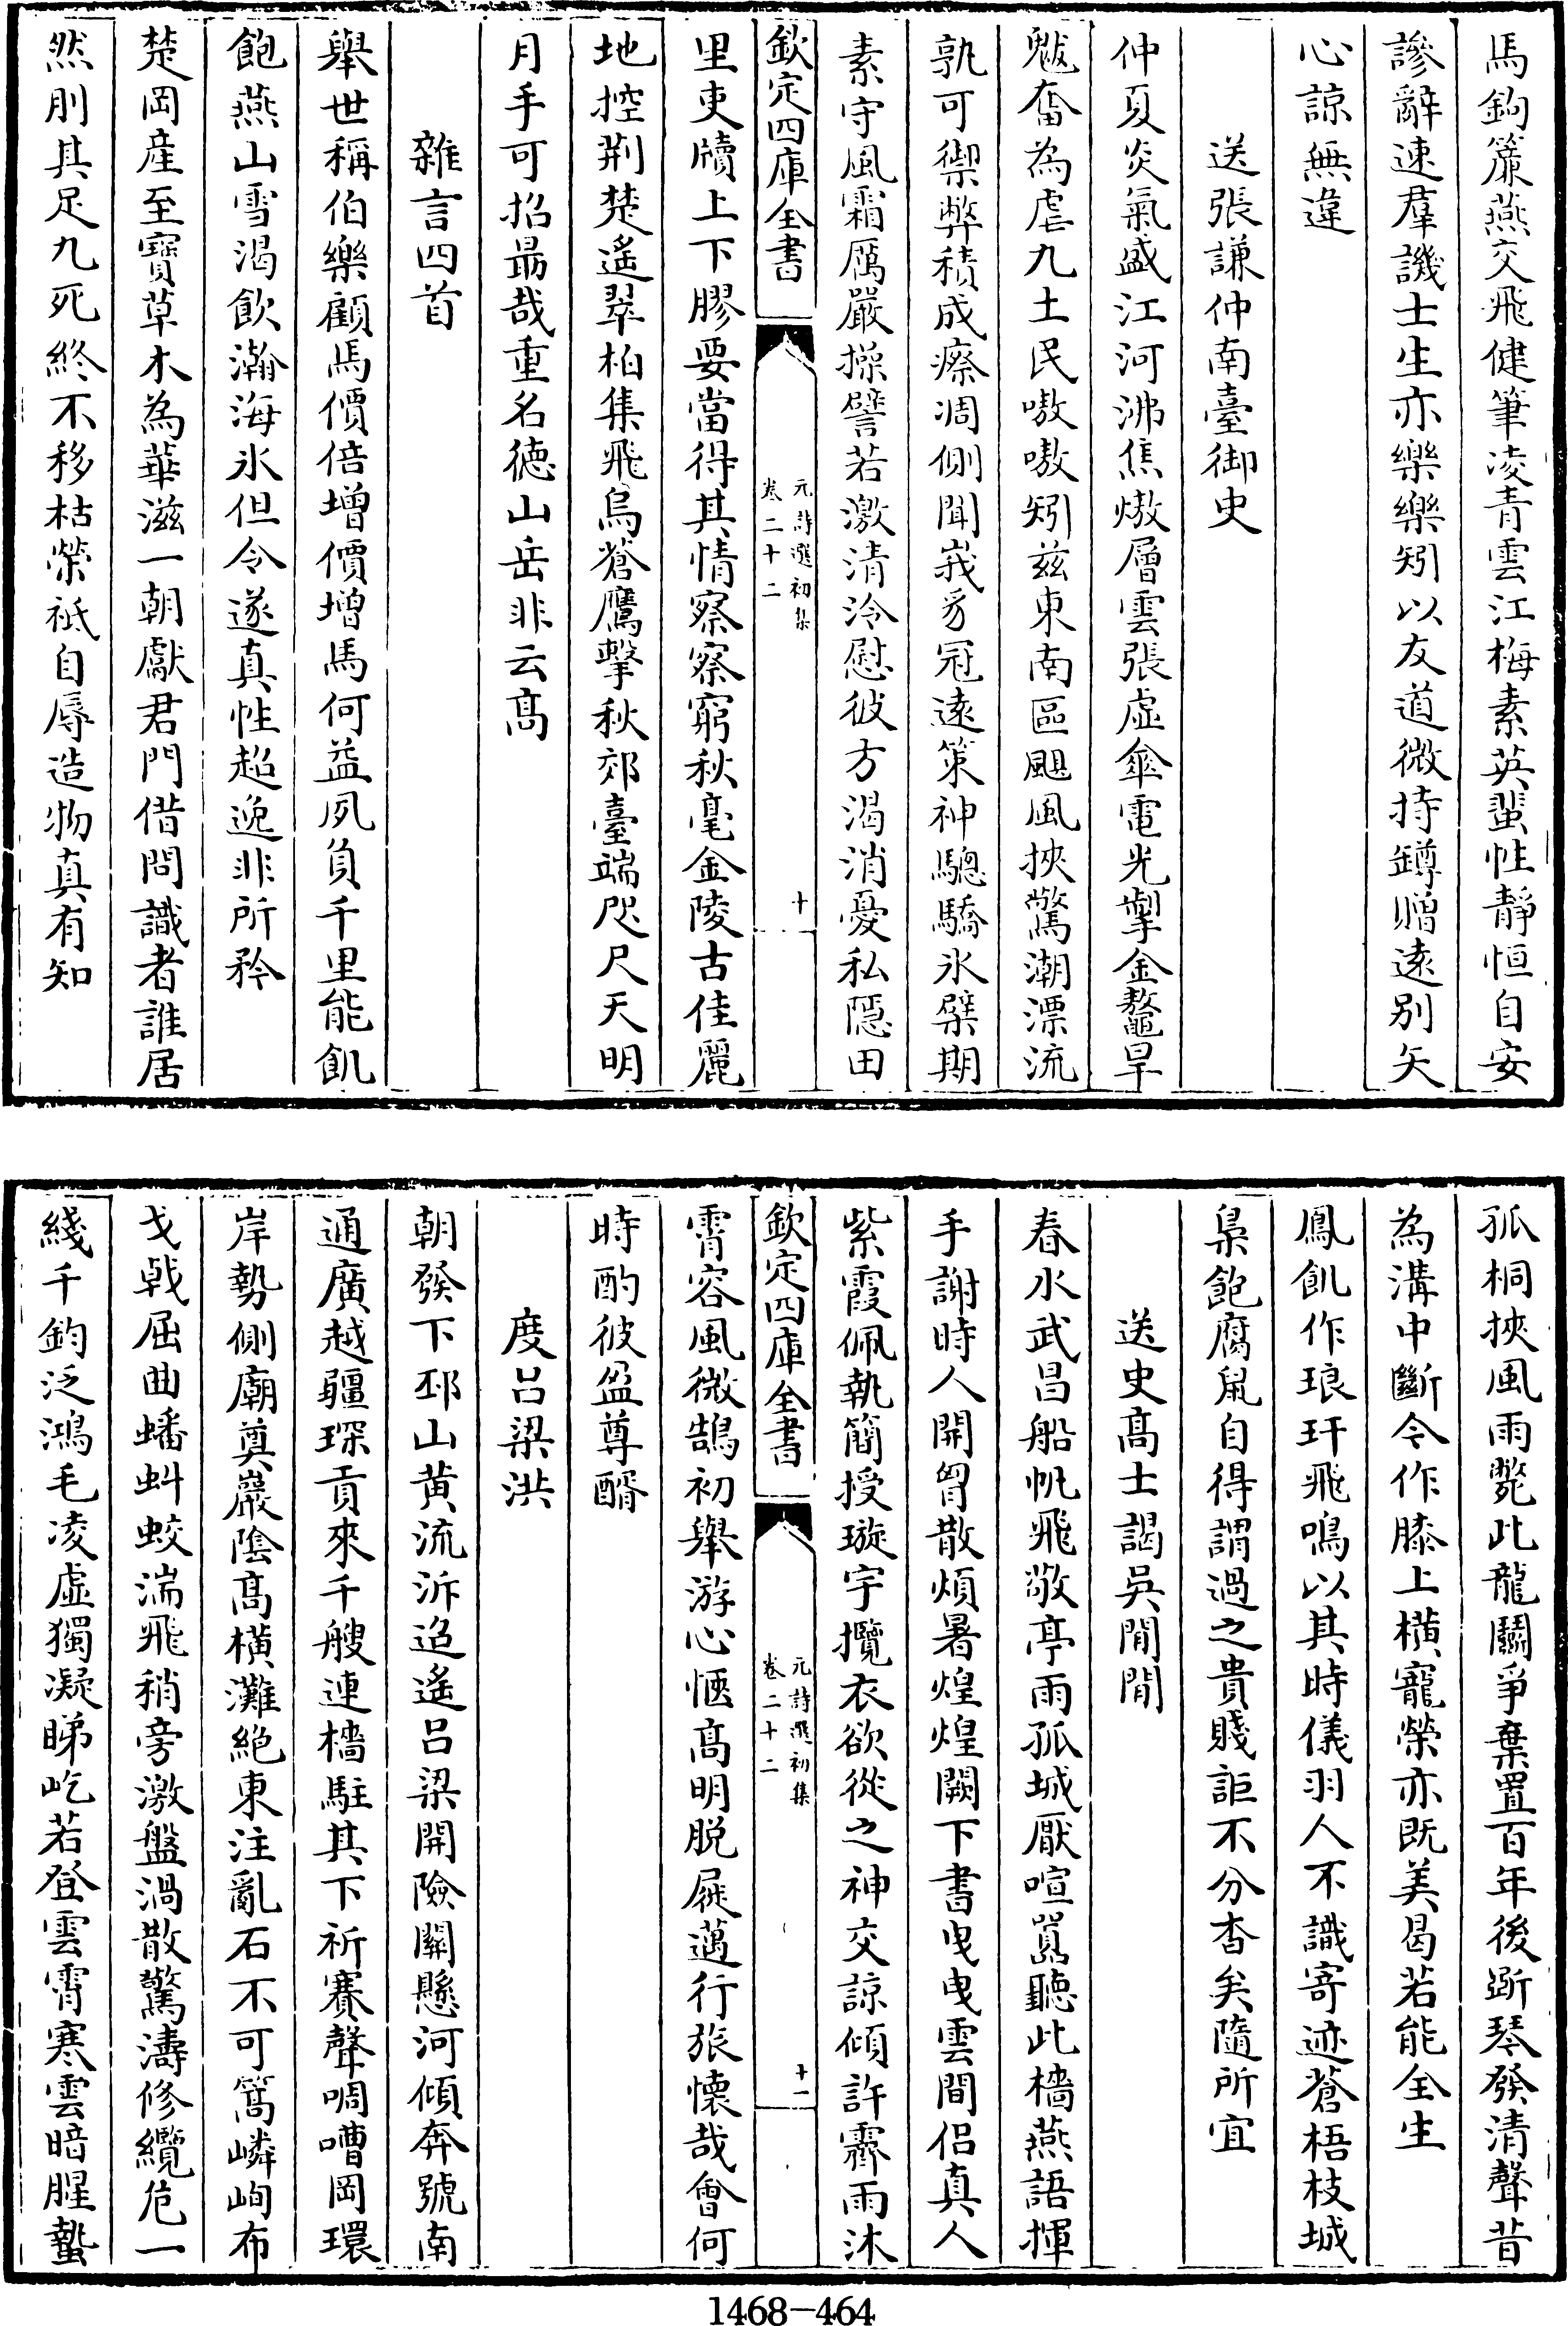 馬鉤簾燕交飛健筆凌青雲江梅素英蜚性靜恒自安
謬辭速羣譏士生亦樂樂矧以友道微持罇贈遠别矢
心諒無違
送張謙仲南臺御史
仲夏炎氣盛江河沸焦熬層雲張虚傘電光掣金鼇旱
魃奮為虐九土民嗷嗷矧兹東南區颶風挾驚潮漂流
孰可禦弊積成瘵凋側聞峩豸冠遠策神驄驕氷檗期
素守風霜厲嚴操譬若激清泠慰彼方渴消憂私隠田
欽定四庫全書
元詩選初集
卷二十二
十
里吏牘上下膠要當得其情察察窮秋毫金陵古佳麗
地控荆楚遙翠柏集飛烏蒼鷹擊秋郊臺端咫尺天明
月手可招勗哉重名徳山岳非云髙
雜言四首
舉世稱伯樂顧馬價倍增價增馬何益夙負千里能飢
飽燕山雪渴飲瀚海氷但令遂真性超逸非所矜
楚岡産至寶草木為華滋一朝獻君門借問識者誰居
然刖其足九死終不移枯榮祗自辱造物真有知
孤桐挾風雨斃此龍鬭爭棄置百年後斵琴發清聲昔
為溝中斷今作膝上横寵榮亦既美曷若能全生
鳳飢作琅玕飛鳴以其時儀羽人不識寄迹蒼梧枝城
梟飽腐鼠自得謂過之貴賤詎不分杳矣隨所宜
送史髙士謁吳閒閒
春水武昌船帆飛敬亭雨孤城厭喧囂聽此檣燕語揮
手謝時人開胷散煩暑煌煌闕下書曳曳雲間侣真人
紫霞佩執簡授璇宇攬衣欲從之神交諒傾許霽雨沐
欽定四庫全書
元詩選初集
卷二十二
十一
霄容風微鵠初舉游心愜髙明脱屣邁行旅懷哉會何
時酌彼盈尊醑
度吕梁洪
朝發下邳山黄流泝迢遙吕梁開險關懸河傾奔號南
通廣越疆琛貢來千艘連檣駐其下祈賽聲啁嘈岡環
岸勢側廟奠巖陰髙横灘絶東注亂石不可篙嶙峋布
戈戟屈曲蟠虯蛟湍飛稍旁激盤渦散驚濤修纜危一
綫千鈞泛鴻毛凌虚獨凝睇屹若登雲霄寒雲暗腥蟄
1468-464